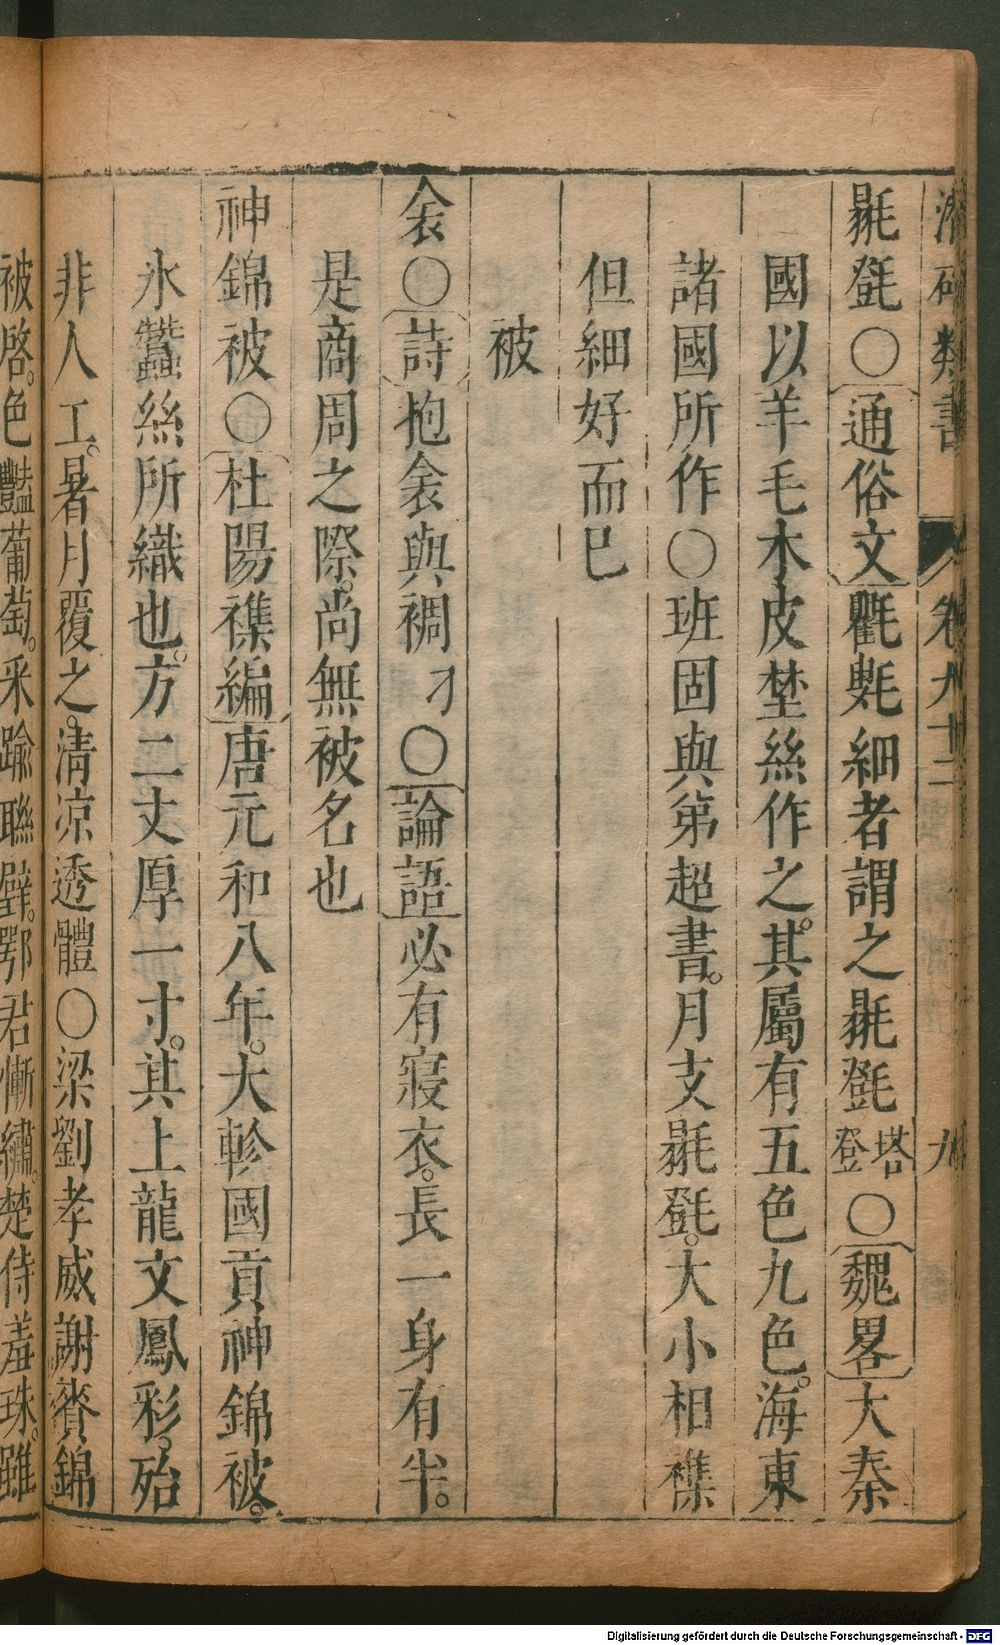 潛確類書 卷九十二 九
毾㲪〇通俗文氍毹細者謂之毾㲪塔登〇魏畧大秦
國以羊毛木皮埜絲作之。其屬有五色九色。海東
諸國所作〇班固與第超書。月支毾㲪。大小相襍
但細好而已
被
衾〇詩抱衾與裯刁〇論語必有寢衣。長一身有半。
是商周之際。尚無被名也
神錦被〇杜陽襍編唐元和八年。大軫國貢神錦被。
氷蠶絲所織也。方二丈厚一寸。其上龍文鳳彩。殆
非人工。暑月覆之。清凉透體〇梁劉孝威謝賚錦
被啓。色豔葡萄。采踰聯璧。鄂君慚繡。楚侍羞珠。雖
Digitalisierung gefördert durch die Deutsche Forschungsgemeinschaft - DFG